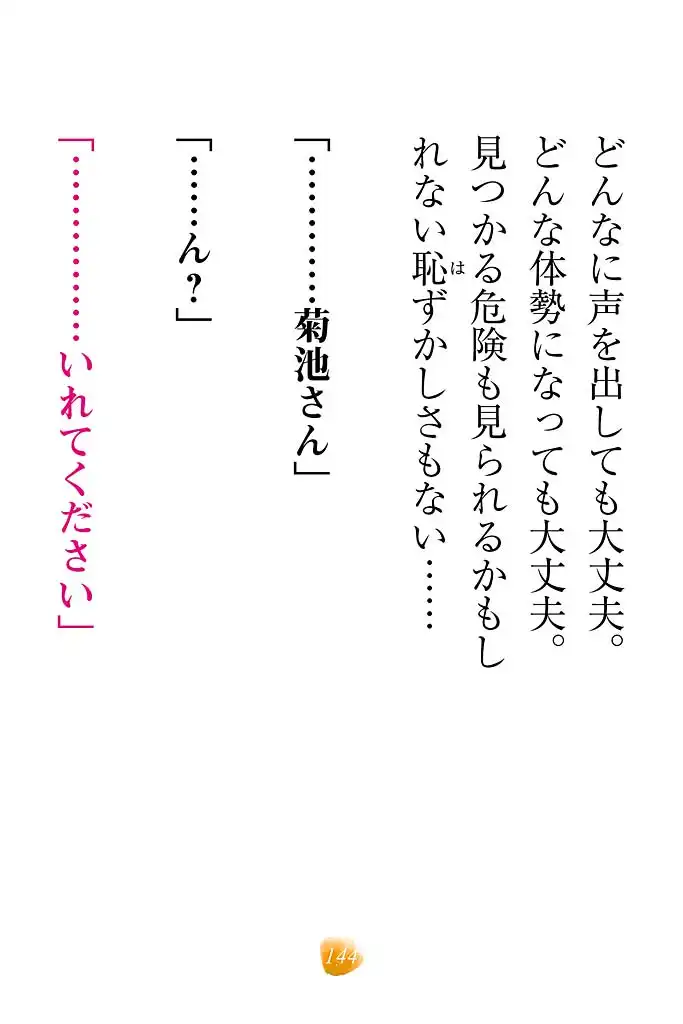 どんなに声を出しても大丈夫。
どんな体勢になっても大丈夫。
見つかる危険も見られるかもし
れない恥ずかしさもない……
は
「…………菊池さん」
「……ん?」
「………………いれてください」
144